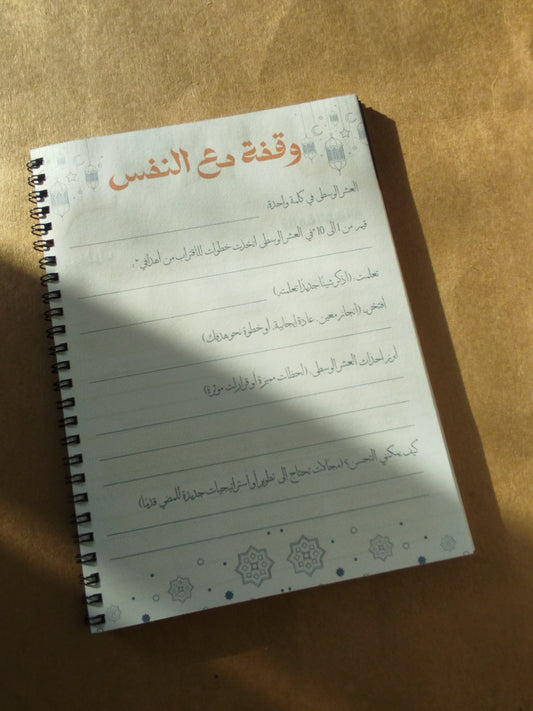 وقفة مع النفس
العشر الوسطى في كلمة واحدة:
قيم من 1 الى 10 "في العشر الوسطى اتخذت خطوات للاقتراب من أهدافي":
تعلمت: (اذكر شيئا جديدا تعلمته)
أفتخر بـ: (انجاز معين، عادة إيجابية، أو خطوة نحو هدفك)
أبرز أحداث العشر الوسطى: (لحظات مميزة أو قرارات مؤثرة)
كيف يمكنني التحسن؟ (مجالات تحتاج الى تطوير أو استراتيجيات جديدة للمضي قدمًا)